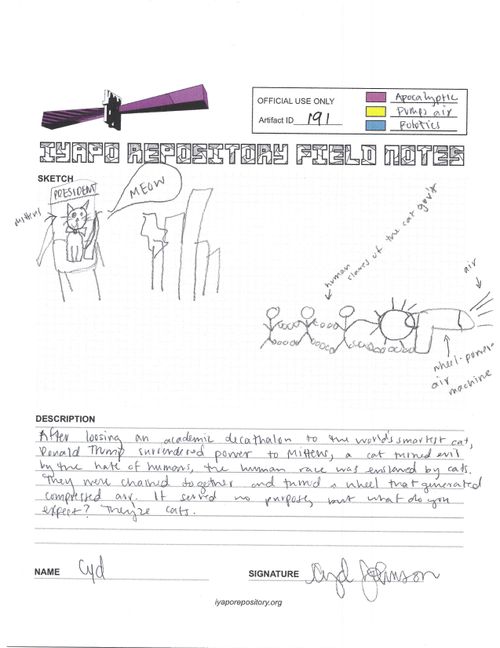 OFFICIAL USE ONLY
Artifact ID 191
Apocalyptic
Pumps air
Robotics
IYAPO REPOSITORY FIELD NOTES
SKETCH
PRESIDENT
MEOW
mittens
human slaves of the cat gov't
air
wheel-power
air machine
DESCRIPTION
After loosing an academic decathalon to the world's smartest cat,
Donald Trump surrendered power to Mittens, a cat turned evil
by the hate of humans, the human race was enslaved by cats.
They were chained together and turned a wheel that generated
compressed air. It served no purpose, but what do you
expect? They're cats.
NAME Cyd
SIGNATURE Cyd Johnson
iyaporepository.org